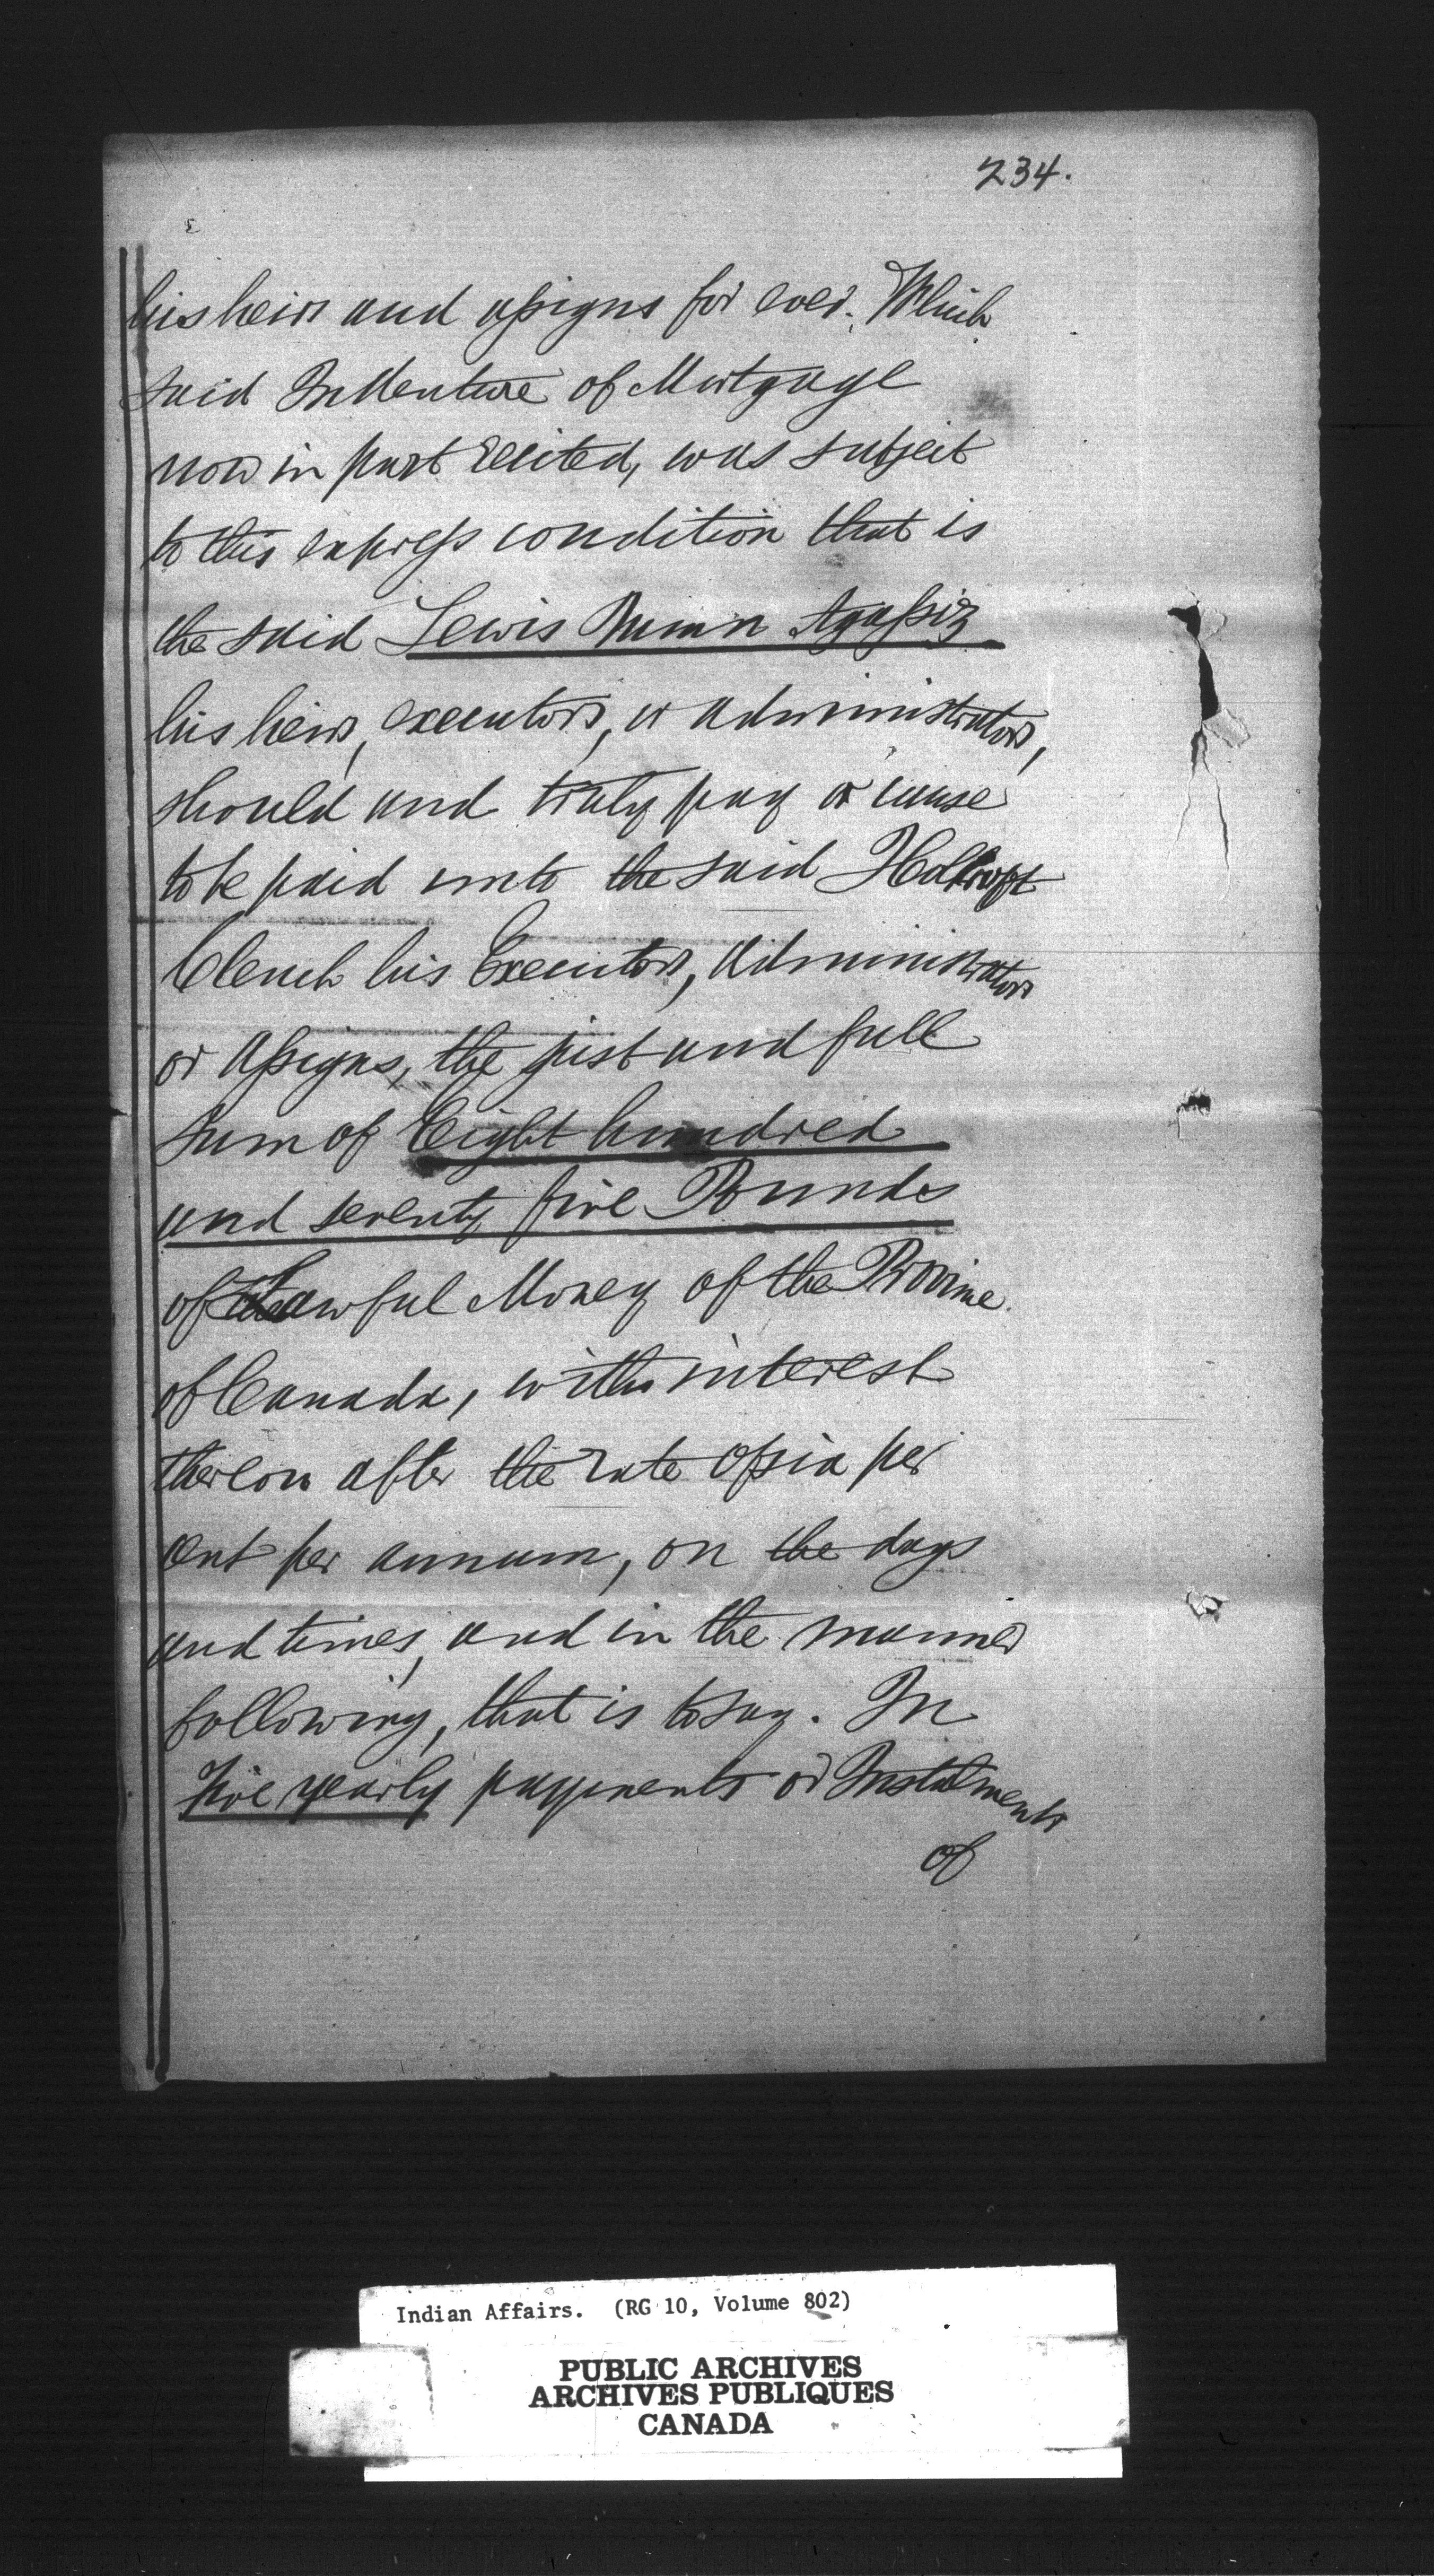 234.
his heirs and assigns for ever. Which
said Indenture of Mortgage
now in part recited, was subject
to this express condition that is
the said Lewis Agassiz
his heirs, executors, or administrators,
should and truly pay or cause
to be paid unto the said Holcroft
Clench his Executors, administrators
or assigns, the just and full
sum of Eight hundred
and seventy five Pounds
of Lawful Money of the Province
of Canada, with interest
thereon after the rate of six per
cent per annum, on the days
and times, and in the manner
following, that is to say. In
five yearly payments or Instalments
of
Indian Affairs. (RG 10, Volume 802)
PUBLIC ARCHIVES
ARCHIVES PUBLIQUES
CANADA